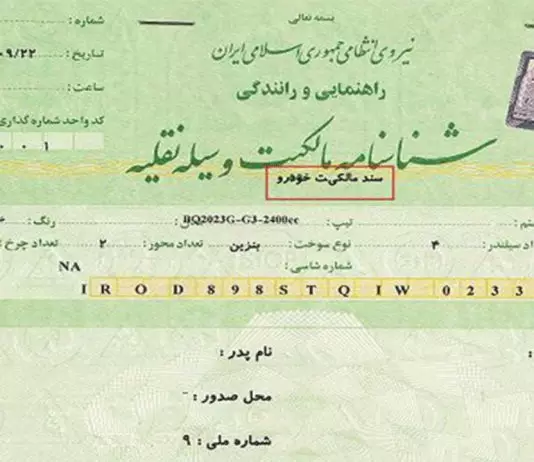 بسمه تعالی
شماره :
نیروی انتظامی جمهوری اسلامی ایران
تاریخ : ۰۹/۲۲
راهنمایی و رانندگی
ساعت :
کد واحد شماره گذاری
۰ ۰ ۱
شناسنامه مالکیت وسیله نقلیه
سند مالکیت خودرو
تیپ : BQ2023G-G3-2400cc رنگ :
سیلندر : ۴ نوع سوخت : بنزین تعداد محور : ۲ تعداد چرخ :
شماره شاسی : NA
I R O D 8 9 8 S T Q I W 0 2 3 3
نام پدر :
محل صدور : -
شماره ملی : ۹